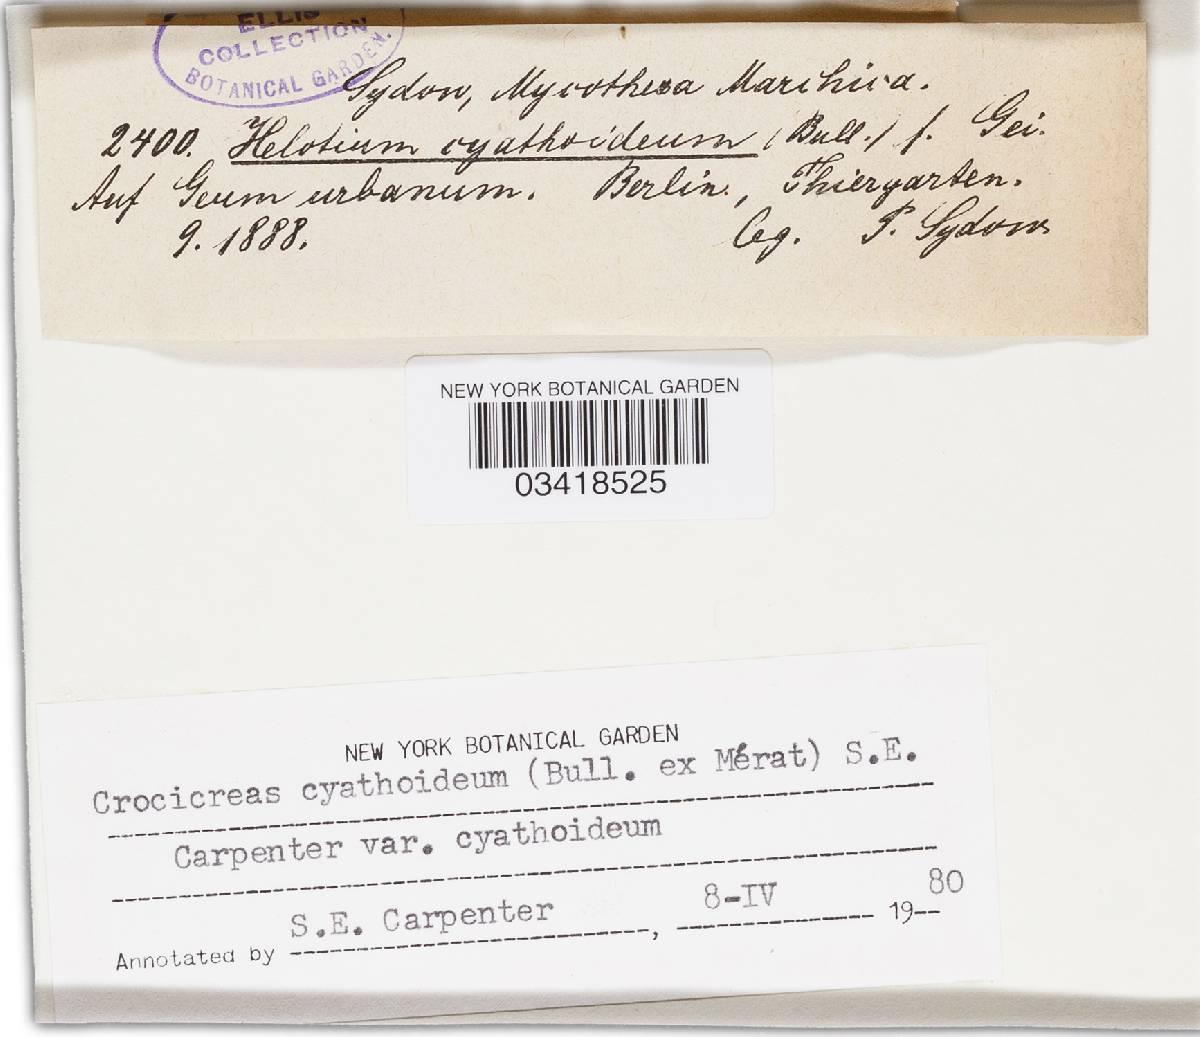 ELLIS
COLLECTION
BOTANICAL GARDEN.
Sydow, Mycotheca Marchica.
2400. Helotium cyathoideum (Bull.) f. Gei.
Auf Geum urbanum. Berlin., Thiergarten.
9. 1888. leg. P. Sydow
NEW YORK BOTANICAL GARDEN
03418525
NEW YORK BOTANICAL GARDEN
Crocicreas cyathoideum (Bull. ex Mérat) S.E.
Carpenter var. cyathoideum
Annotated by S.E. Carpenter, 8-IV 1980